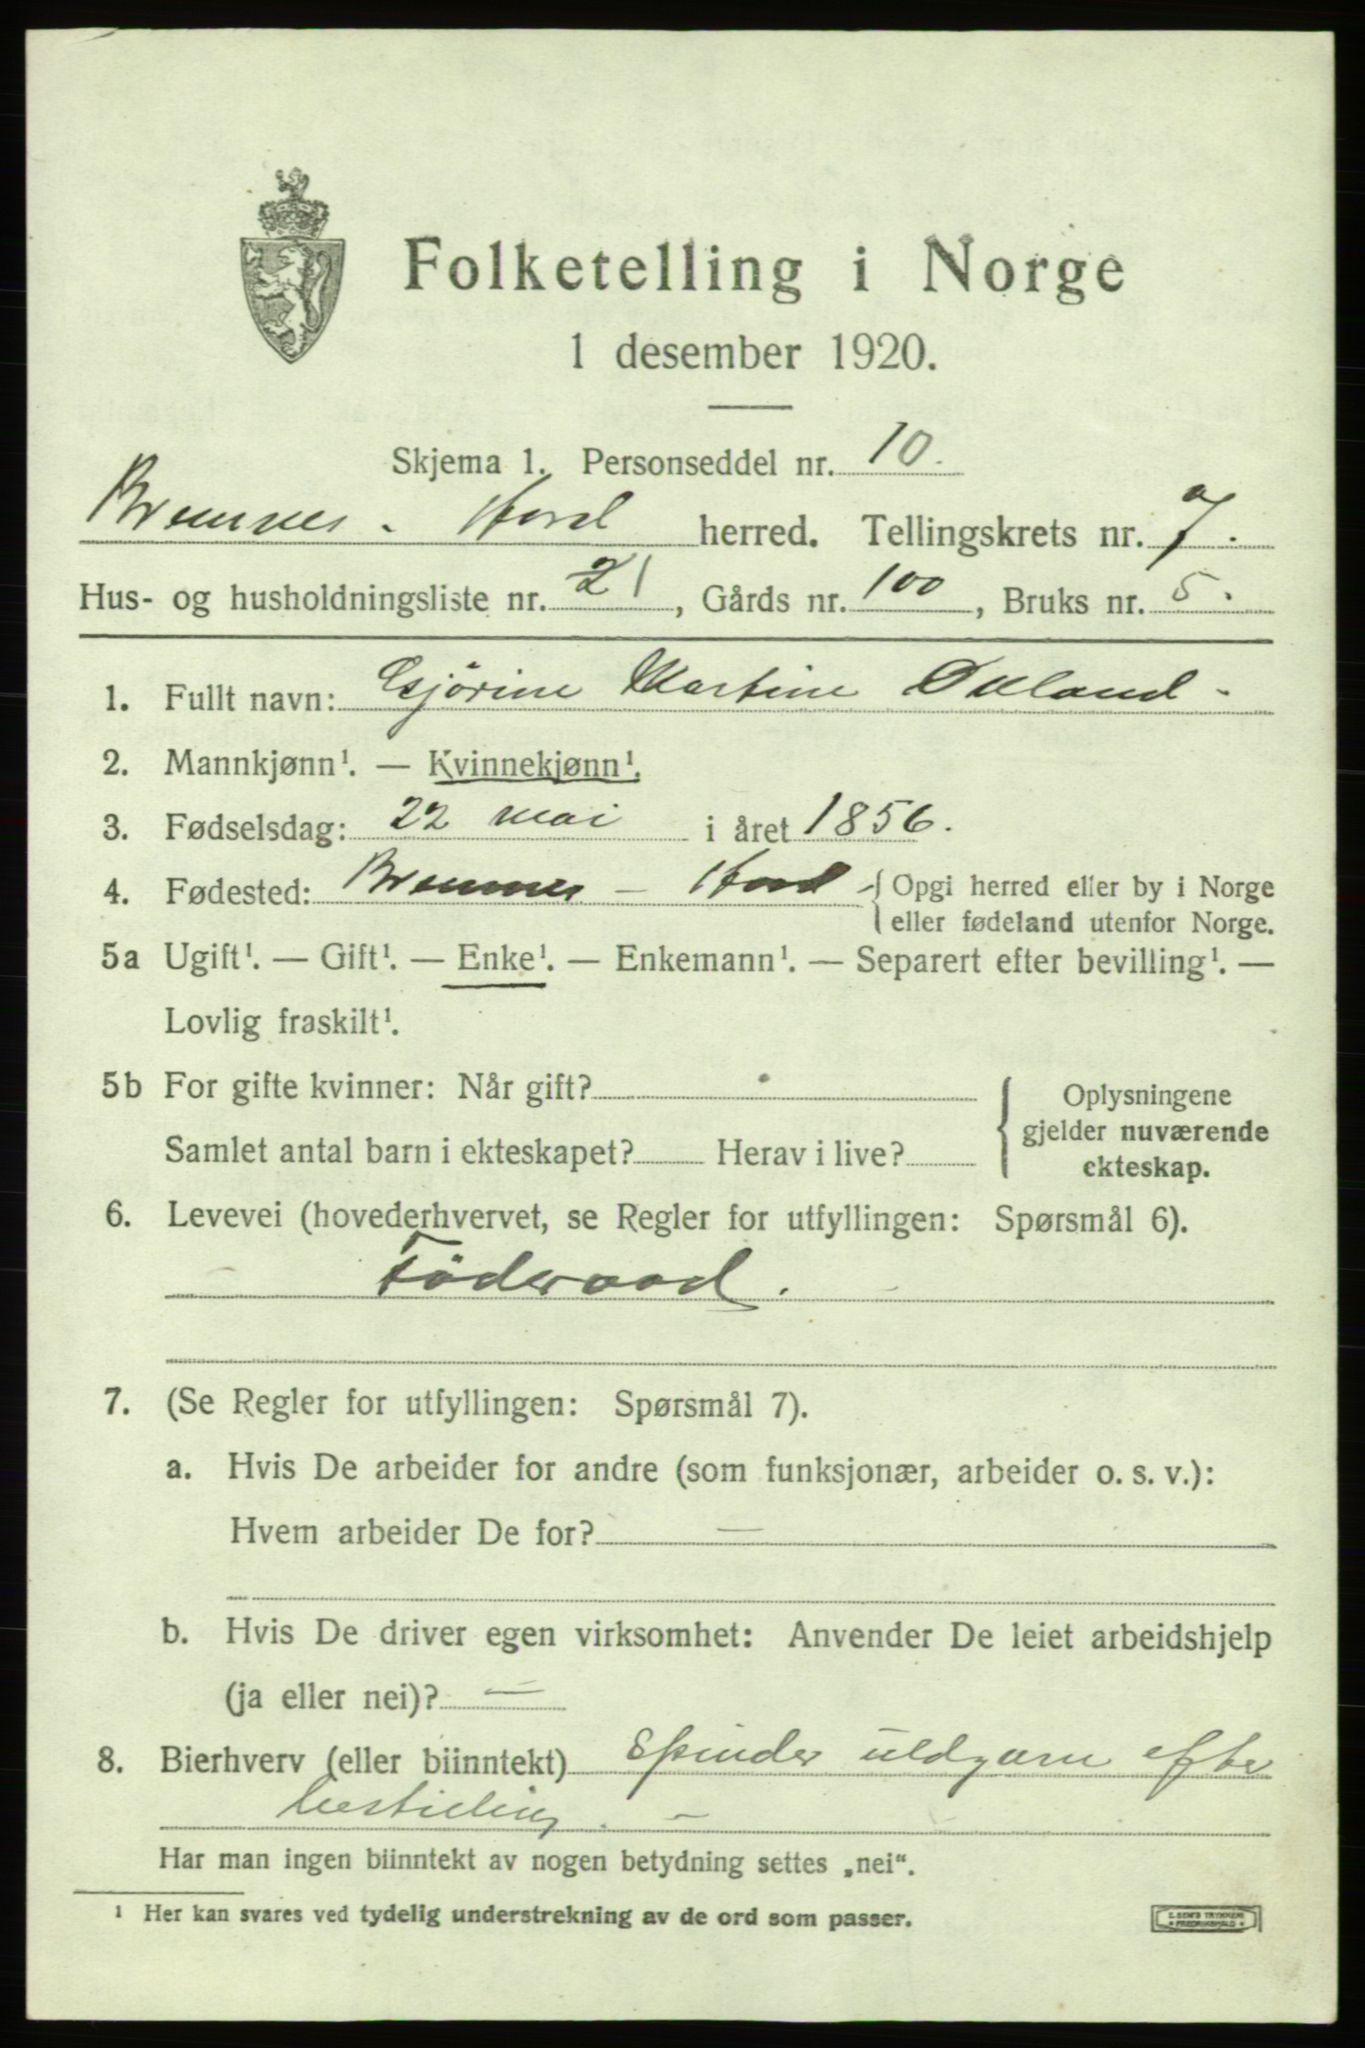 Folketelling i Norge
1 desember 1920.
Skjema 1. Personseddel nr. 10.
Bremnes - Hord herred. Tellingskrets nr. 7.
Hus- og husholdningsliste nr. 21, Gårds nr. 100, Bruks nr. 5.
1. Fullt navn: Gjörine Martine Økland -
2. Mannkjønn¹. — Kvinnekjønn¹.
3. Fødselsdag: 22 mai i året 1856.
4. Fødested: Bremnes - Hord { Opgi herred eller by i Norge
eller fødeland utenfor Norge.
5a Ugift¹. — Gift¹. — Enke¹. — Enkemann¹. — Separert efter bevilling¹. —
Lovlig fraskilt¹.
5b For gifte kvinner: Når gift?
Samlet antal barn i ekteskapet? Herav i live?
Oplysningene
gjelder nuværende
ekteskap.
6. Levevei (hovederhvervet, se Regler for utfyllingen: Spørsmål 6).
Föderaad.
7. (Se Regler for utfyllingen: Spørsmål 7).
a. Hvis De arbeider for andre (som funksjonær, arbeider o. s. v.):
Hvem arbeider De for? —
b. Hvis De driver egen virksomhet: Anvender De leiet arbeidshjelp
(ja eller nei)? —
8. Bierhverv (eller biinntekt) Spinder uldgarn efter
bestilling. -
Har man ingen biinntekt av nogen betydning settes „nei“.
¹ Her kan svares ved tydelig understrekning av de ord som passer.